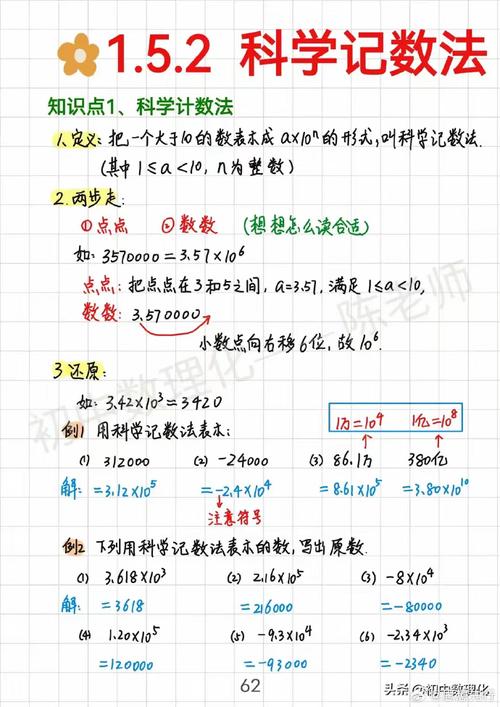 1.5.2 科学记数法
知识点1、科学计数法
1.定义:把一个大于10的数表示成 a×10ⁿ的形式,叫科学记数法.
(其中 1≤a<10, n为整数)
2.两步走:
①点点 ②数数 (想想怎么读合适)
如: 3570000=3.57×10⁶
点点: 把点点在3和5之间, a=3.57, 满足 1≤a<10,
数数: 3.570000
小数点向右移6位, 故10⁶.
3还原:
如: 3.42×10³=3420
1万=10⁴ 1亿=10⁸
例1 用科学记数法表示:
(1) 312000 (2) -24000 (3) 86.1万 380亿
解: =3.12×10⁵ =-2.4×10⁴ =8.61×10⁵ =3.80×10¹⁰
注意符号
例2 下列用科学记数法表示的数,写出原数.
(1) 3.618×10³ (2) 2.16×10⁵ (3) -8×10⁴
解: =3618 =216000 =-80000
(4) 1.20×10⁵ (5) -9.3×10⁴ (6) -2.34×10³
=120000 =-93000 =-2340
62
头条@初中数理化
初中数理化——陈老师